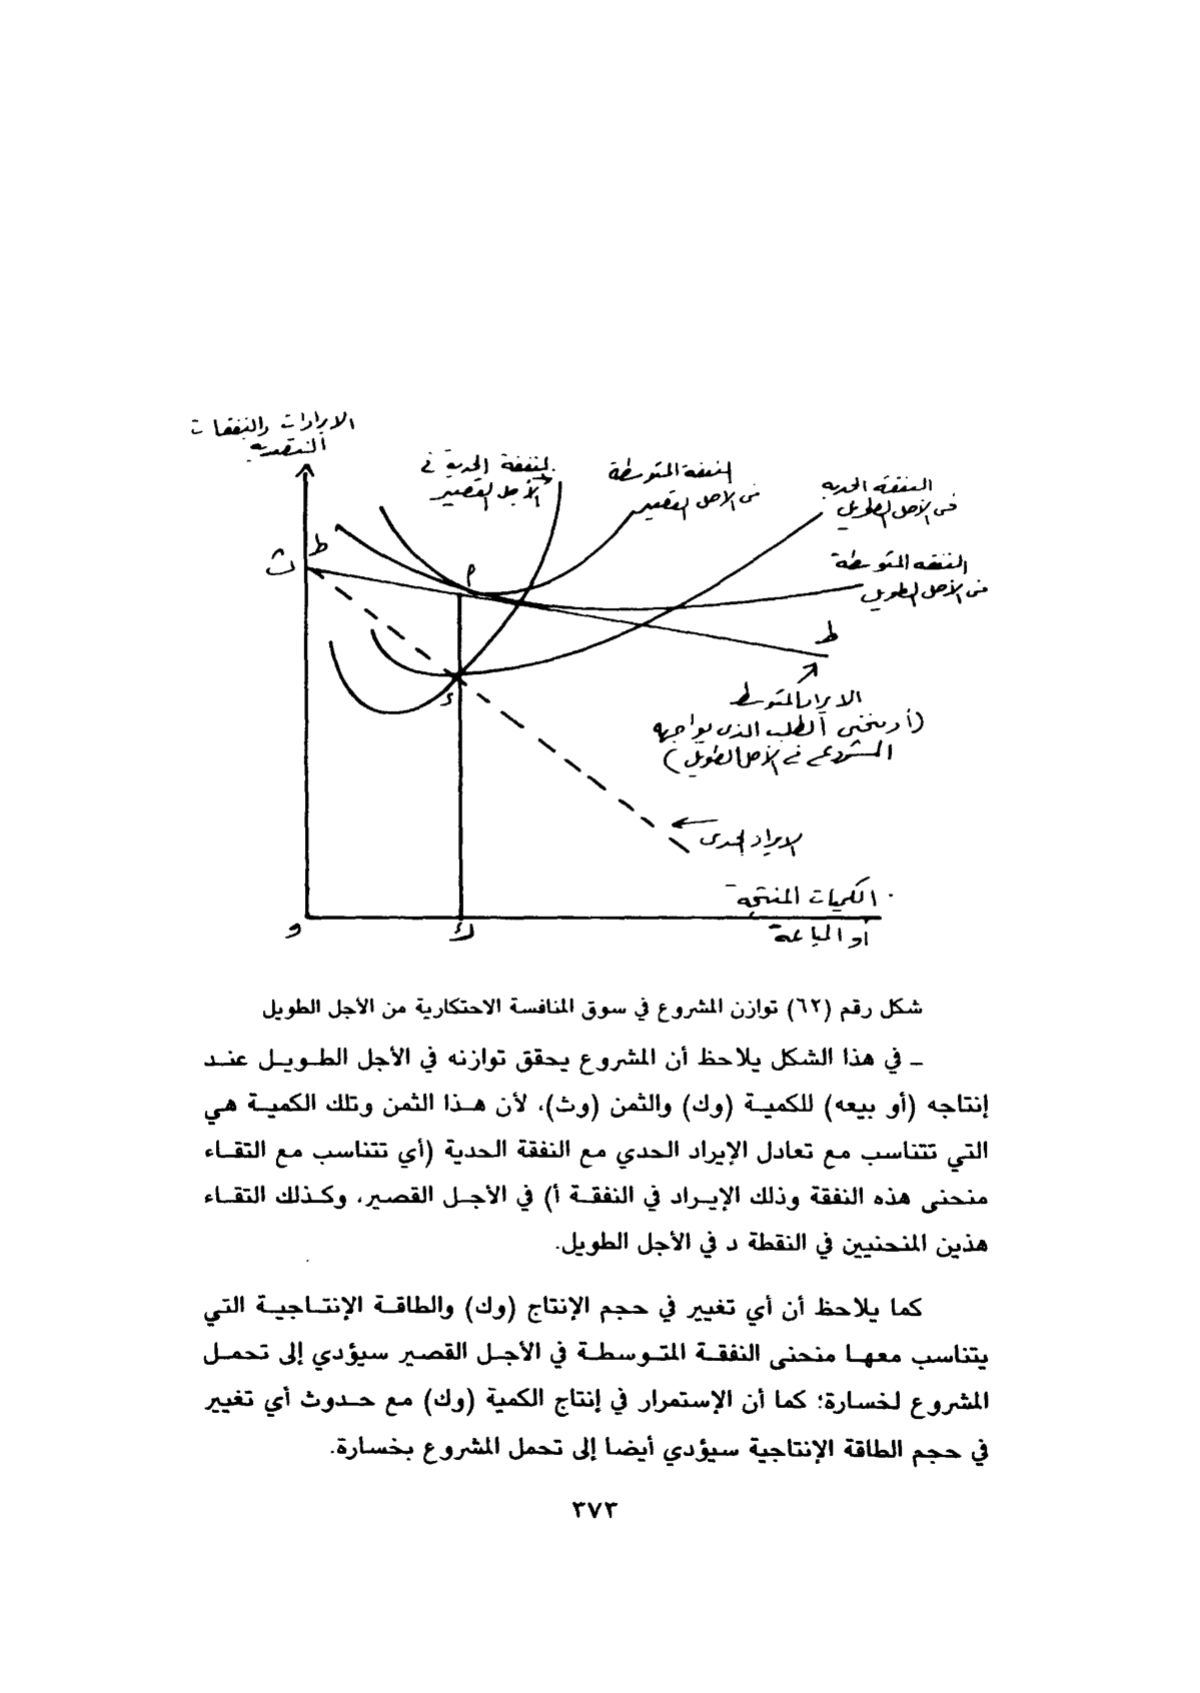 الايرادات والنفقات
النقدية
النفقة الحدية في
الأجل القصير
النفقة المتوسطة
في الأجل القصير
النفقة الحدية
في الأجل الطويل
النفقة المتوسطة
في الأجل الطويل
ط
ث
أ
ط
د
الايراد المتوسط
(أو منحنى الطلب الذي يواجهه
المشروع في الأجل الطويل)
الايراد الحدى
الكميات المنتجة
أو المباعة
و
ك
شكل رقم (٦٢) توازن المشروع في سوق المنافسة الاحتكارية من الأجل الطويل
ـ في هذا الشكل يلاحظ أن المشروع يحقق توازنه في الأجل الطويل عند
إنتاجه (أو بيعه) للكمية (وك) والثمن (وث)، لأن هذا الثمن وتلك الكمية هي
التي تتناسب مع تعادل الإيراد الحدي مع النفقة الحدية (أي تتناسب مع التقاء
منحنى هذه النفقة وذلك الإيراد في النفقة أ) في الأجل القصير، وكذلك التقاء
هذين المنحنيين في النقطة د في الأجل الطويل.
كما يلاحظ أن أي تغيير في حجم الإنتاج (وك) والطاقة الإنتاجية التي
يتناسب معها منحنى النفقة المتوسطة في الأجل القصير سيؤدي إلى تحمل
المشروع لخسارة؛ كما أن الإستمرار في إنتاج الكمية (وك) مع حدوث أي تغيير
في حجم الطاقة الإنتاجية سيؤدي أيضا إلى تحمل المشروع بخسارة.
٣٧٣